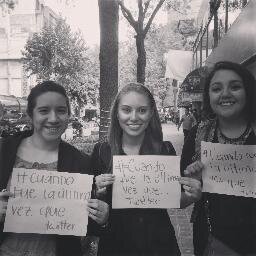 #Cuando
fue la última
vez que
twitter
#Cuando
fue la última
vez que...
twitter
#Cuando
fue la última
vez que